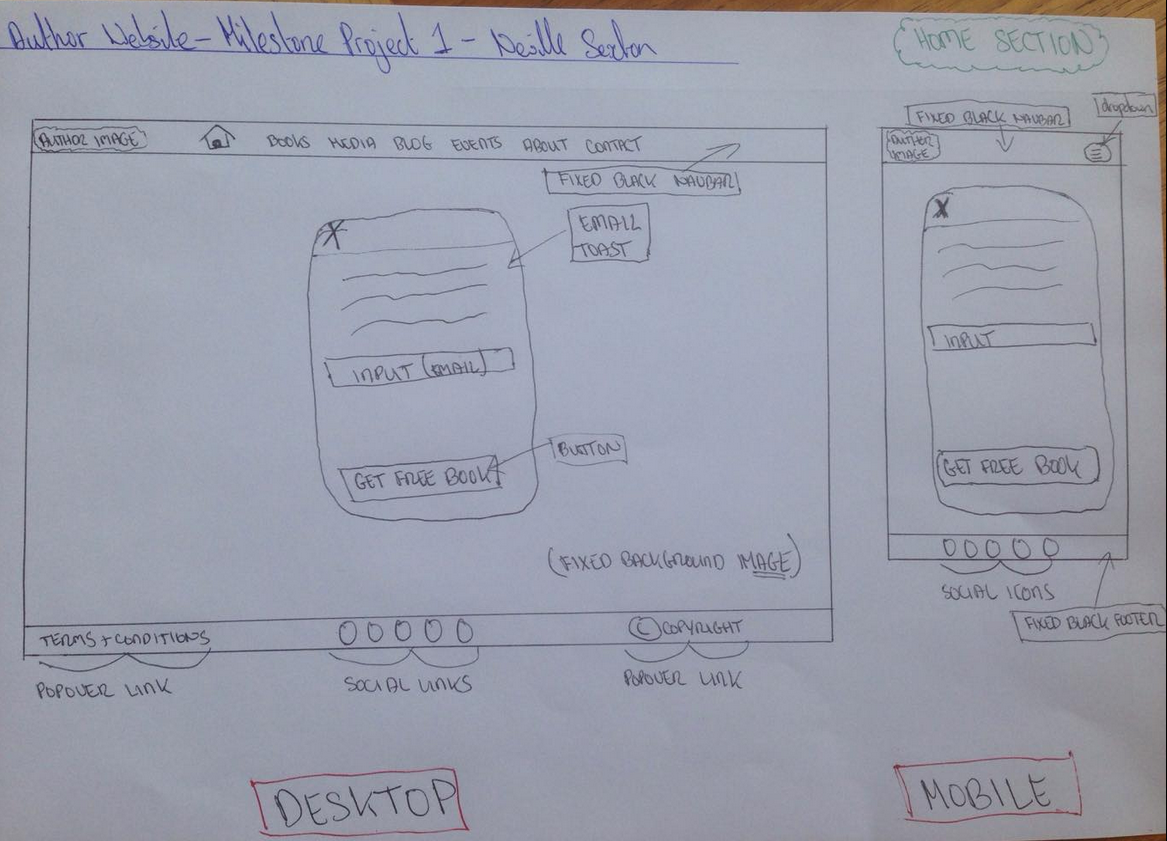 Author Website - Milestone Project 1 - Neville Sexton
HOME SECTION
AUTHOR IMAGE
BOOKS MEDIA BLOG EVENTS ABOUT CONTACT
FIXED BLACK NAVBAR
X
EMAIL
TOAST
INPUT (EMAIL)
GET FREE BOOK
BUTTON
(FIXED BACKGROUND IMAGE)
TERMS + CONDITIONS
© COPYRIGHT
POPOVER LINK
SOCIAL LINKS
POPOVER LINK
DESKTOP
FIXED BLACK NAVBAR
dropdown
AUTHOR
IMAGE
X
INPUT
GET FREE BOOK
SOCIAL ICONS
FIXED BLACK FOOTER
MOBILE